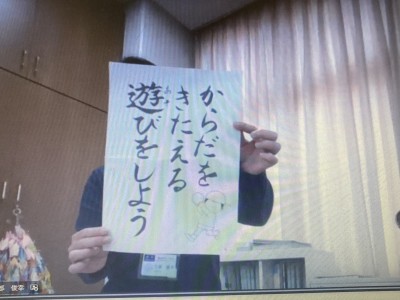 からだを
きたえる
遊びをしよう
あそ